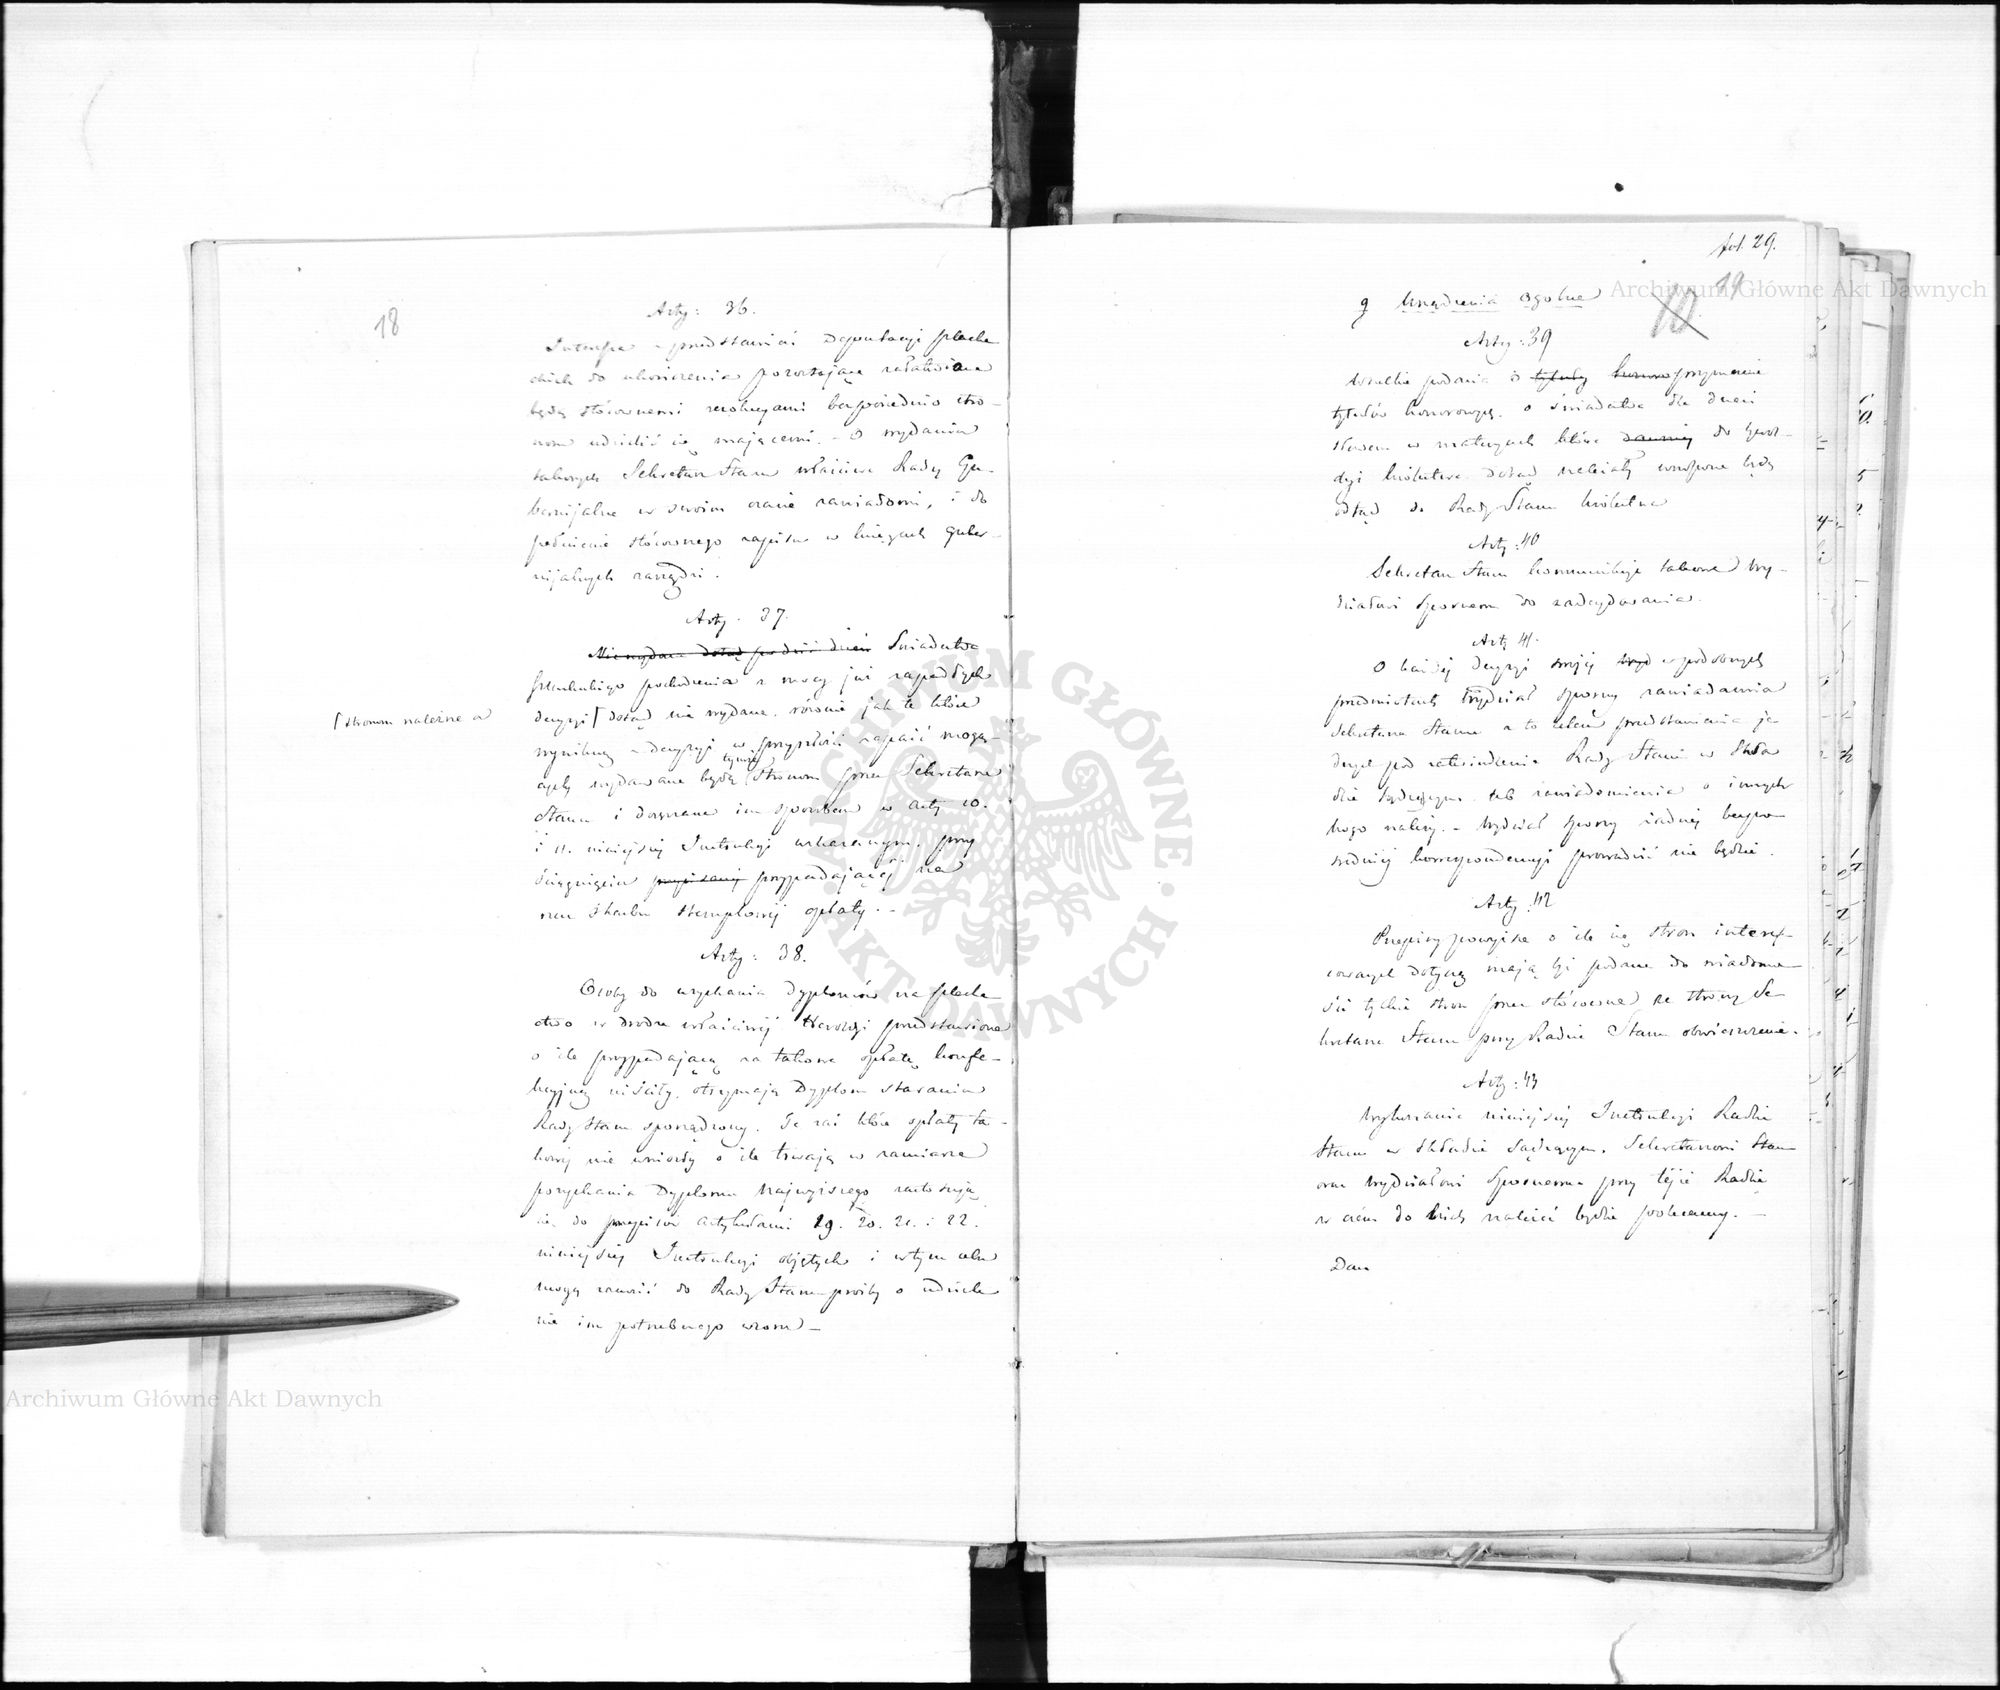 18
Arty: 36.
Interessa z przedstawień Deputacyi szlache
ckich do ukończenia pozostające załatwione
będą stósownemi rezolucyami bezpośrednio stro-
nom udzielić się mającemi. - O wydaniu
takowych Sekretarz Stanu właściwe Rady Gu-
bernijalne w swoim czasie zawiadomi, i do
pełnienie stósownego zapisu w księgach guber-
nijalnych zarządzi.
Arty. 37.
Nie wydane dotąd po dziś dzień Świadectwa
szlacheckiego pochodzenia z mocy już zapadłych
decyzyi [ dotąd nie wydane, równie jak te które
[ stronom należne a
wynikną z decyzyi w przyszłości zapaść mogą-
cych wydawane będą tymże Stronom przez Sekretarza
Stanu i doręczane im sposobem w arty 10.
i 11. niniejszej Instrukcyi wskazanym, przy
ściągnięciu przypadającej na
rzecz Skarbu stemplowej opłaty. -
Arty: 38.
Osoby do uzyskania Dyplomów na szlache
ctwo w drodze właściwej Heroldyi przedstawione
o ile przypadającą za takowe opłatę konfe-
kcyjną uiściły, otrzymają Dyplom staraniem
Rady Stanu sporządzony. Te zaś które opłaty ta-
kowej nie wniosły o ile trwają w zamiarze
pozyskania Dyplomu Najwyższego zastosują
się do przepisów artykułami 19. 20. 21. i 22.
niniejszej Instrukcyi objętych i w tym celu
mogą zanosić do Rady Stanu prośby o udziele
nie im potrzebnego wzoru -
fol. 29.
19
10
Urządzenia Ogólne
Arty: 39
Wszelkie podania o tytuły honoro przyznanie
tytułów honorowych, o świadectwa dla dzieci
słowem w materyach które dawniej do Herol-
dyi Królestwa dotąd należały wnoszone będą
odtąd do Rady Stanu Królestwa
Arty: 40
Sekretarz Stanu kommunikuje takowe Wy-
działowi Spornemu do zadecydowania.
Arty 41.
O każdej decyzyi swojej w podobnych
przedmiotach Wydział Sporny zawiadamia
Sekretarza Stanu a to celem przedstawienia ja-
dnych pod zatwierdzenie Rady Stanu w Skła
dzie Sądzącym, lub zawiadomienia o innych
kogo należy. - Wydział Sporny żadnej bezpo-
średniej korrespondencyi prowadzić nie będzie.
Arty: 42
Przepisy powyższe o ile się stron interes-
sowanych dotyczą mają być podane do wiadomo-
ści tychże stron przez stósowne ze strony Se-
kretarza Stanu przy Radzie Stanu obwieszczenie.
Arty: 43
Wykonanie niniejszej Instrukcyi Radzie
Stanu w Składzie Sądzącym, Sekretarzowi Stanu
oraz Wydziałowi Spornemu przy tejże Radzie
w czém do kich należeć będzie polecamy. -
Dan
Archiwum Główne Akt Dawnych
Archiwum Główne Akt Dawnych
ARCHIWUM GŁÓWNE • AKT DAWNYCH •